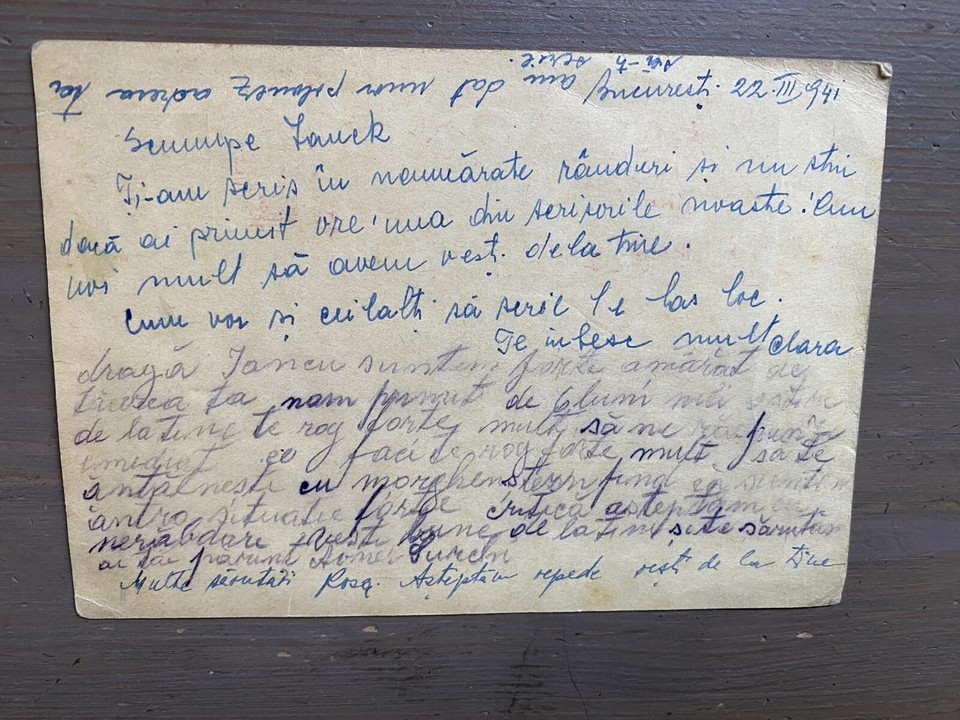 București. 22.III 941
Scumpe Ianck
Ți-am scris în nenumărate rânduri și nu știu
dacă ai primit vre'una din scrisorile noaste. Am
voi mult să avem vești de la tine.
Cum vor și ceilalți să scrie le las loc.
Te iubesc mult Clara
dragă Iancu suntem forte amărât de
tăcerea ta nam primit de 6 luni nici o știre
de la tine te rog forte mult să ne răspunzi
imediat te rog forte mult să te
ântâlnești cu morghenstern fiind că suntem
ântro situație forte critică așteptăm cu
nerăbdare vești bune de la tine și te sărutăm
ai tăi părinți
Multe sărutări Rosa. Așteptăm repede vești de la tine
am dat unor polonezi adresa ta
să-ți scrie.